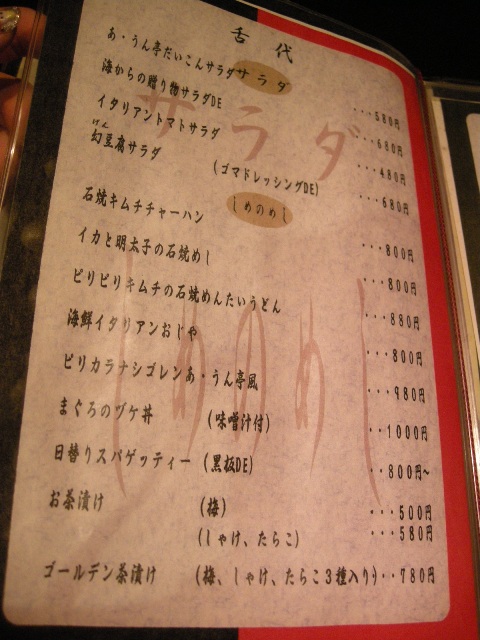 舌代
サラダ
あ・うん亭だいこんサラダ ・・・580円
海からの贈り物サラダDE ・・・680円
イタリアントマトサラダ ・・・480円
げん
幻豆腐サラダ (ゴマドレッシングDE) ・・・680円
サラダ
しめのめし
石焼キムチチャーハン ・・・800円
イカと明太子の石焼めし ・・・800円
ピリピリキムチの石焼めんたいうどん ・・・880円
海鮮イタリアンおじや ・・・800円
ピリカラナシゴレンあ・うん亭風 ・・・980円
まぐろのヅケ丼 (味噌汁付) ・・1000円
日替りスパゲッティー (黒板DE) ・・800円~
お茶漬け (梅) ・・・500円
(しゃけ、たらこ) ・・・580円
ゴールデン茶漬け (梅、しゃけ、たらこ3種入り)・・780円
しめのめし